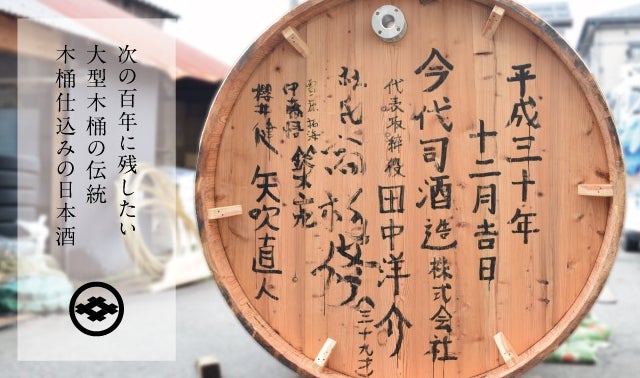 平成三十年
十二月吉日
今代司酒造株式会社
代表取締役 田中洋介
杜氏
(三十九才)
伊藤
鈴木
櫻井健 矢吹直人
次の百年に残したい
大型木桶の伝統
木桶仕込みの日本酒